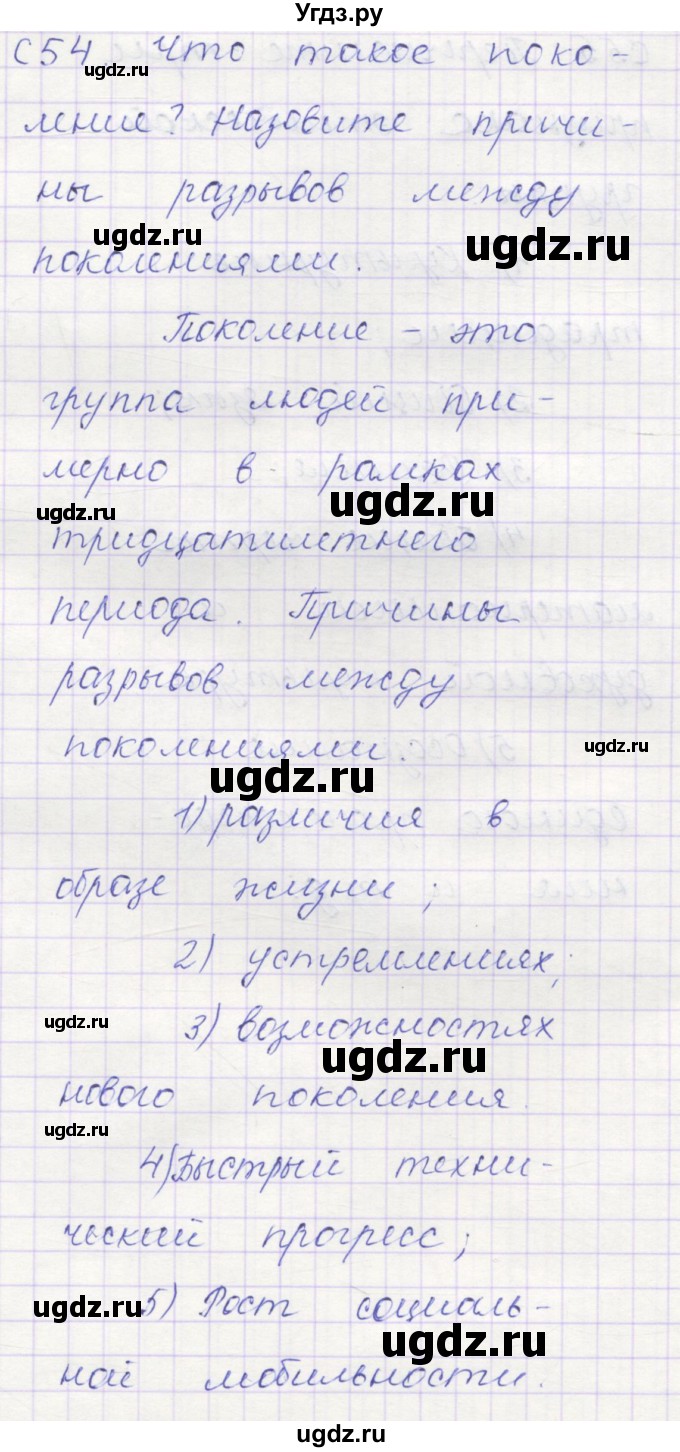 Угдз.ру
С54 Что такое поко-
ugdz.ru
ление? Назовите причи-
ны разрывов между
ugdz.ru ugdz.ru
поколениями.
Поколение – это
группа людей при-
мерно в рамках
ugdz.ru
ugdz.ru
тридцатилетнего
периода. Причины
разрывов между
поколениями.
ugdz.ru
ugdz.ru
1) различия в
образе жизни;
2) устремлениях;
ugdz.ru
3) возможностях
ugdz.ru
нового поколения.
ugdz.ru
4) Быстрый техни-
ческий прогресс;
ugdz.ru
5) Рост социаль-
ugdz.ru
ной мобильности.
ugdz.ru